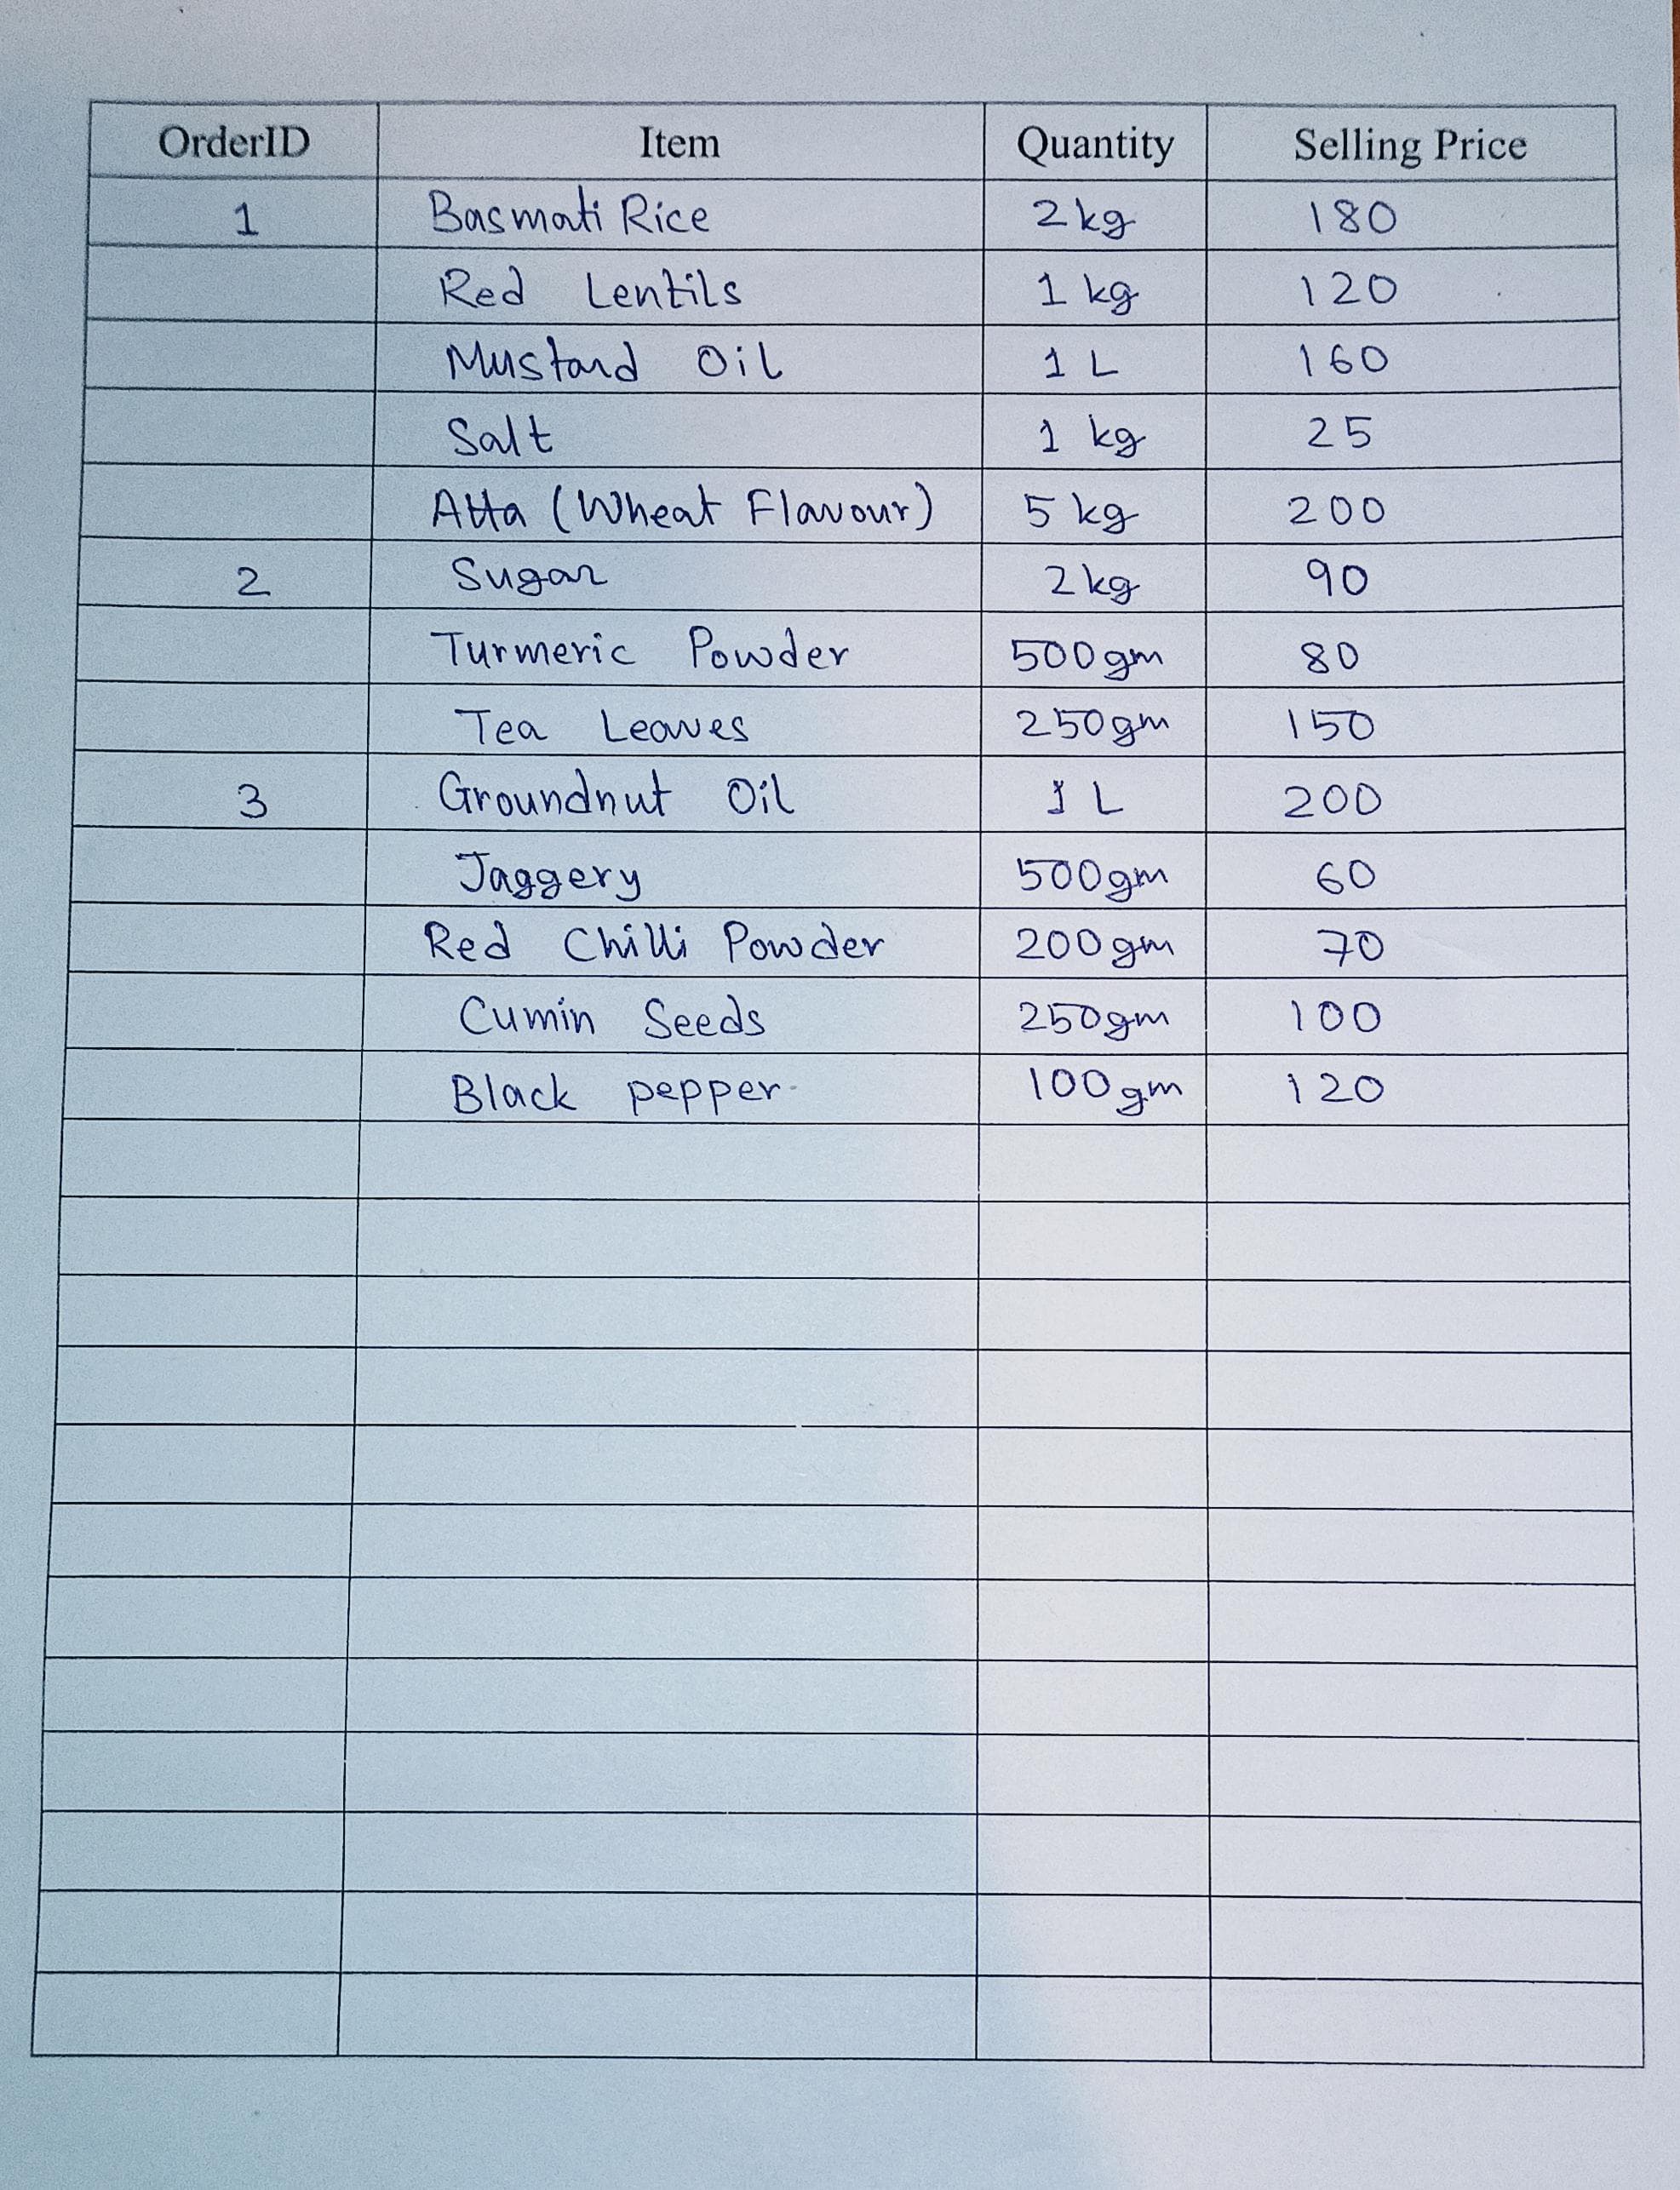 OrderID Item Quantity Selling Price
1 Basmati Rice 2 kg 180
Red Lentils 1 kg 120
Mustard Oil 1 L 160
Salt 1 kg 25
Atta (Wheat Flavour) 5 kg 200
2 Sugar 2 kg 90
Turmeric Powder 500 gm 80
Tea Leaves 250 gm 150
3 Groundnut Oil 1 L 200
Jaggery 500 gm 60
Red Chilli Powder 200 gm 70
Cumin Seeds 250 gm 100
Black pepper 100 gm 120